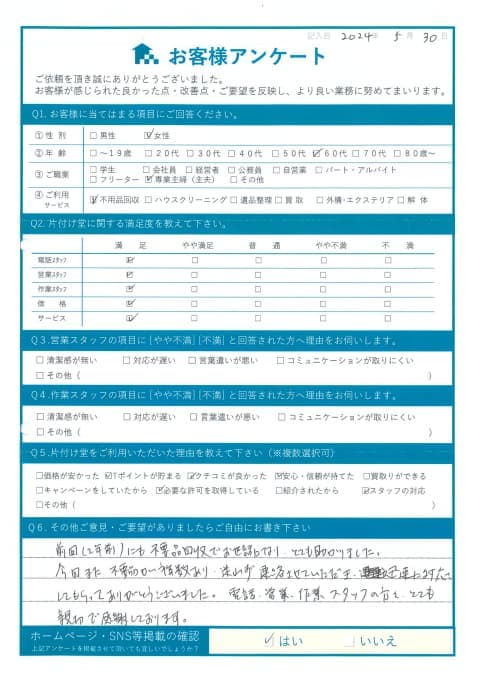 記入日 2024年 5月 30日
お客様アンケート
ご依頼を頂き誠にありがとうございました。
お客様が感じられた良かった点・改善点・ご要望を反映し、より良い業務に努めてまいります。
Q1. お客様に当てはまる項目にご回答ください。
①性別 □男性 ☑女性
②年齢 □～19歳 □20代 □30代 □40代 □50代 ☑60代 □70代 □80歳～
③ご職業 □学生 □会社員 □経営者 □公務員 □自営業 □パート・アルバイト
□フリーター ☑専業主婦（主夫） □その他
④ご利用サービス ☑不用品回収 □ハウスクリーニング □遺品整理 □買取 □外構・エクステリア □解体
Q2. 片付け堂に関する満足度を教えて下さい。
満足 やや満足 普通 やや不満 不満
電話スタッフ ☑ □ □ □ □
営業スタッフ ☑ □ □ □ □
作業スタッフ ☑ □ □ □ □
価格 ☑ □ □ □ □
サービス ☑ □ □ □ □
Q3. 営業スタッフの項目に[やや不満][不満]と回答された方へ理由をお伺いします。
□清潔感が無い □対応が遅い □言葉遣いが悪い □コミュニケーションが取りにくい
□その他（ ）
Q4. 作業スタッフの項目に[やや不満][不満]と回答された方へ理由をお伺いします。
□清潔感が無い □対応が遅い □言葉遣いが悪い □コミュニケーションが取りにくい
□その他（ ）
Q5. 片付け堂をご利用いただいた理由を教えて下さい（※複数選択可）
□価格が安かった ☑Tポイントが貯まる ☑クチコミが良かった ☑安心・信頼が持てた □買取りができる
□キャンペーンをしていたから ☑必要な許可を取得している □紹介されたから ☑スタッフの対応
□その他（ ）
Q6. その他ご意見・ご要望がありましたらご自由にお書き下さい
前回(2年前)にも不要品回収でお世話になり、とても助かりました。
今回また不要品が複数あり、連絡させていただき、迅速に対応
してもらってありがとうございました。電話、営業、作業スタッフの方々、とても
親切で感謝しております。
ホームページ・SNS等掲載の確認 ☑はい □いいえ
上記アンケートを掲載させて頂いても宜しいでしょうか？